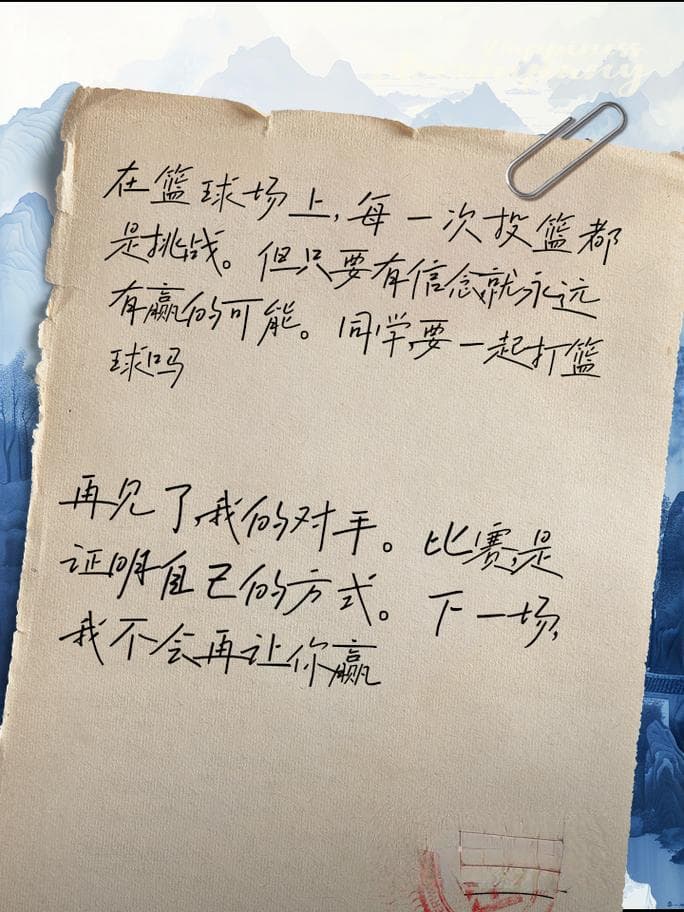 在篮球场上,每一次投篮都
是挑战。但只要有信念就永远
有赢的可能。同学,要一起打篮
球吗
再见了,我的对手。比赛,是
证明自己的方式。下一场,
我不会再让你赢